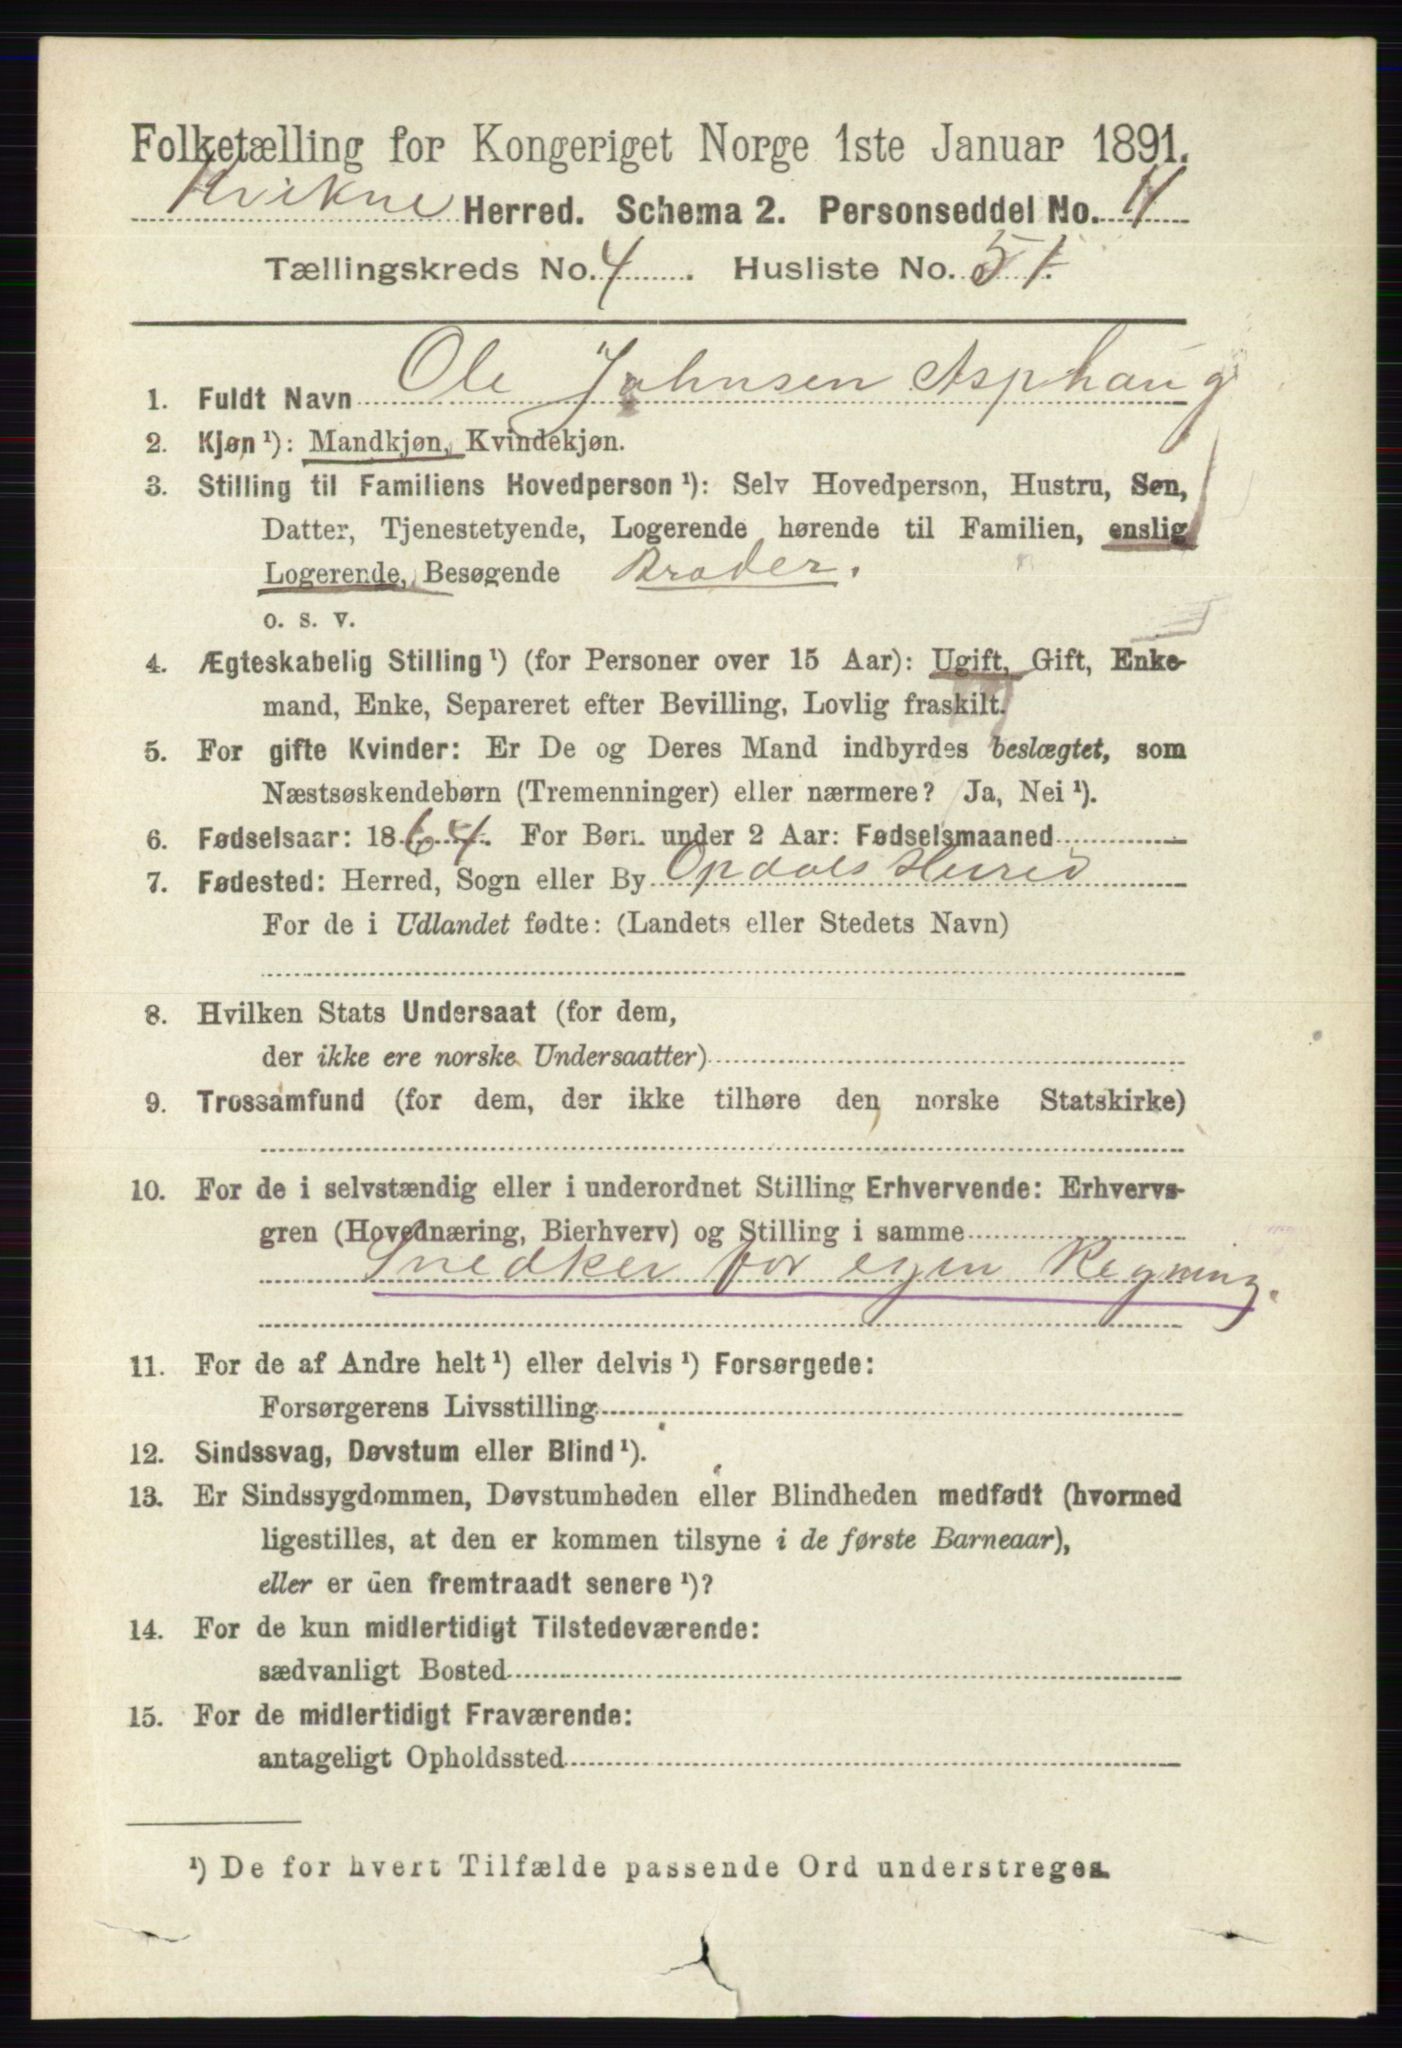 Folketælling for Kongeriget Norge 1ste Januar 1891.
Kvikne Herred. Schema 2. Personseddel No. 11
Tællingskreds No. 4 . Husliste No. 51.
1. Fuldt Navn Ole Johnsen Asphaug
2. Kjøn ¹): Mandkjøn, Kvindekjøn.
3. Stilling til Familiens Hovedperson ¹): Selv Hovedperson, Hustru, Søn,
Datter, Tjenestetyende, Logerende hørende til Familien, enslig
Logerende, Besøgende Broder.
o. s. v.
4. Ægteskabelig Stilling ¹) (for Personer over 15 Aar): Ugift, Gift, Enke-
mand, Enke, Separeret efter Bevilling, Lovlig fraskilt.
5. For gifte Kvinder: Er De og Deres Mand indbyrdes beslægtet, som
Næstsøskendebørn (Tremenninger) eller nærmere? Ja, Nei ¹).
6. Fødselsaar: 1864. For Børn under 2 Aar: Fødselsmaaned
7. Fødested: Herred, Sogn eller By Opdals Herred
For de i Udlandet fødte: (Landets eller Stedets Navn)
8. Hvilken Stats Undersaat (for dem,
der ikke ere norske Undersaatter)
9. Trossamfund (for dem, der ikke tilhøre den norske Statskirke)
10. For de i selvstændig eller i underordnet Stilling Erhvervende: Erhvervs-
gren (Hovednæring, Bierhverv) og Stilling i samme
Snedker for egen Regning.
11. For de af Andre helt ¹) eller delvis ¹) Forsørgede:
Forsørgerens Livsstilling
12. Sindssvag, Døvstum eller Blind ¹).
13. Er Sindssygdommen, Døvstumheden eller Blindheden medfødt (hvormed
ligestilles, at den er kommen tilsyne i de første Barneaar),
eller er den fremtraadt senere ¹)?
14. For de kun midlertidigt Tilstedeværende:
sædvanligt Bosted
15. For de midlertidigt Fraværende:
antageligt Opholdssted
¹) De for hvert Tilfælde passende Ord understreges.